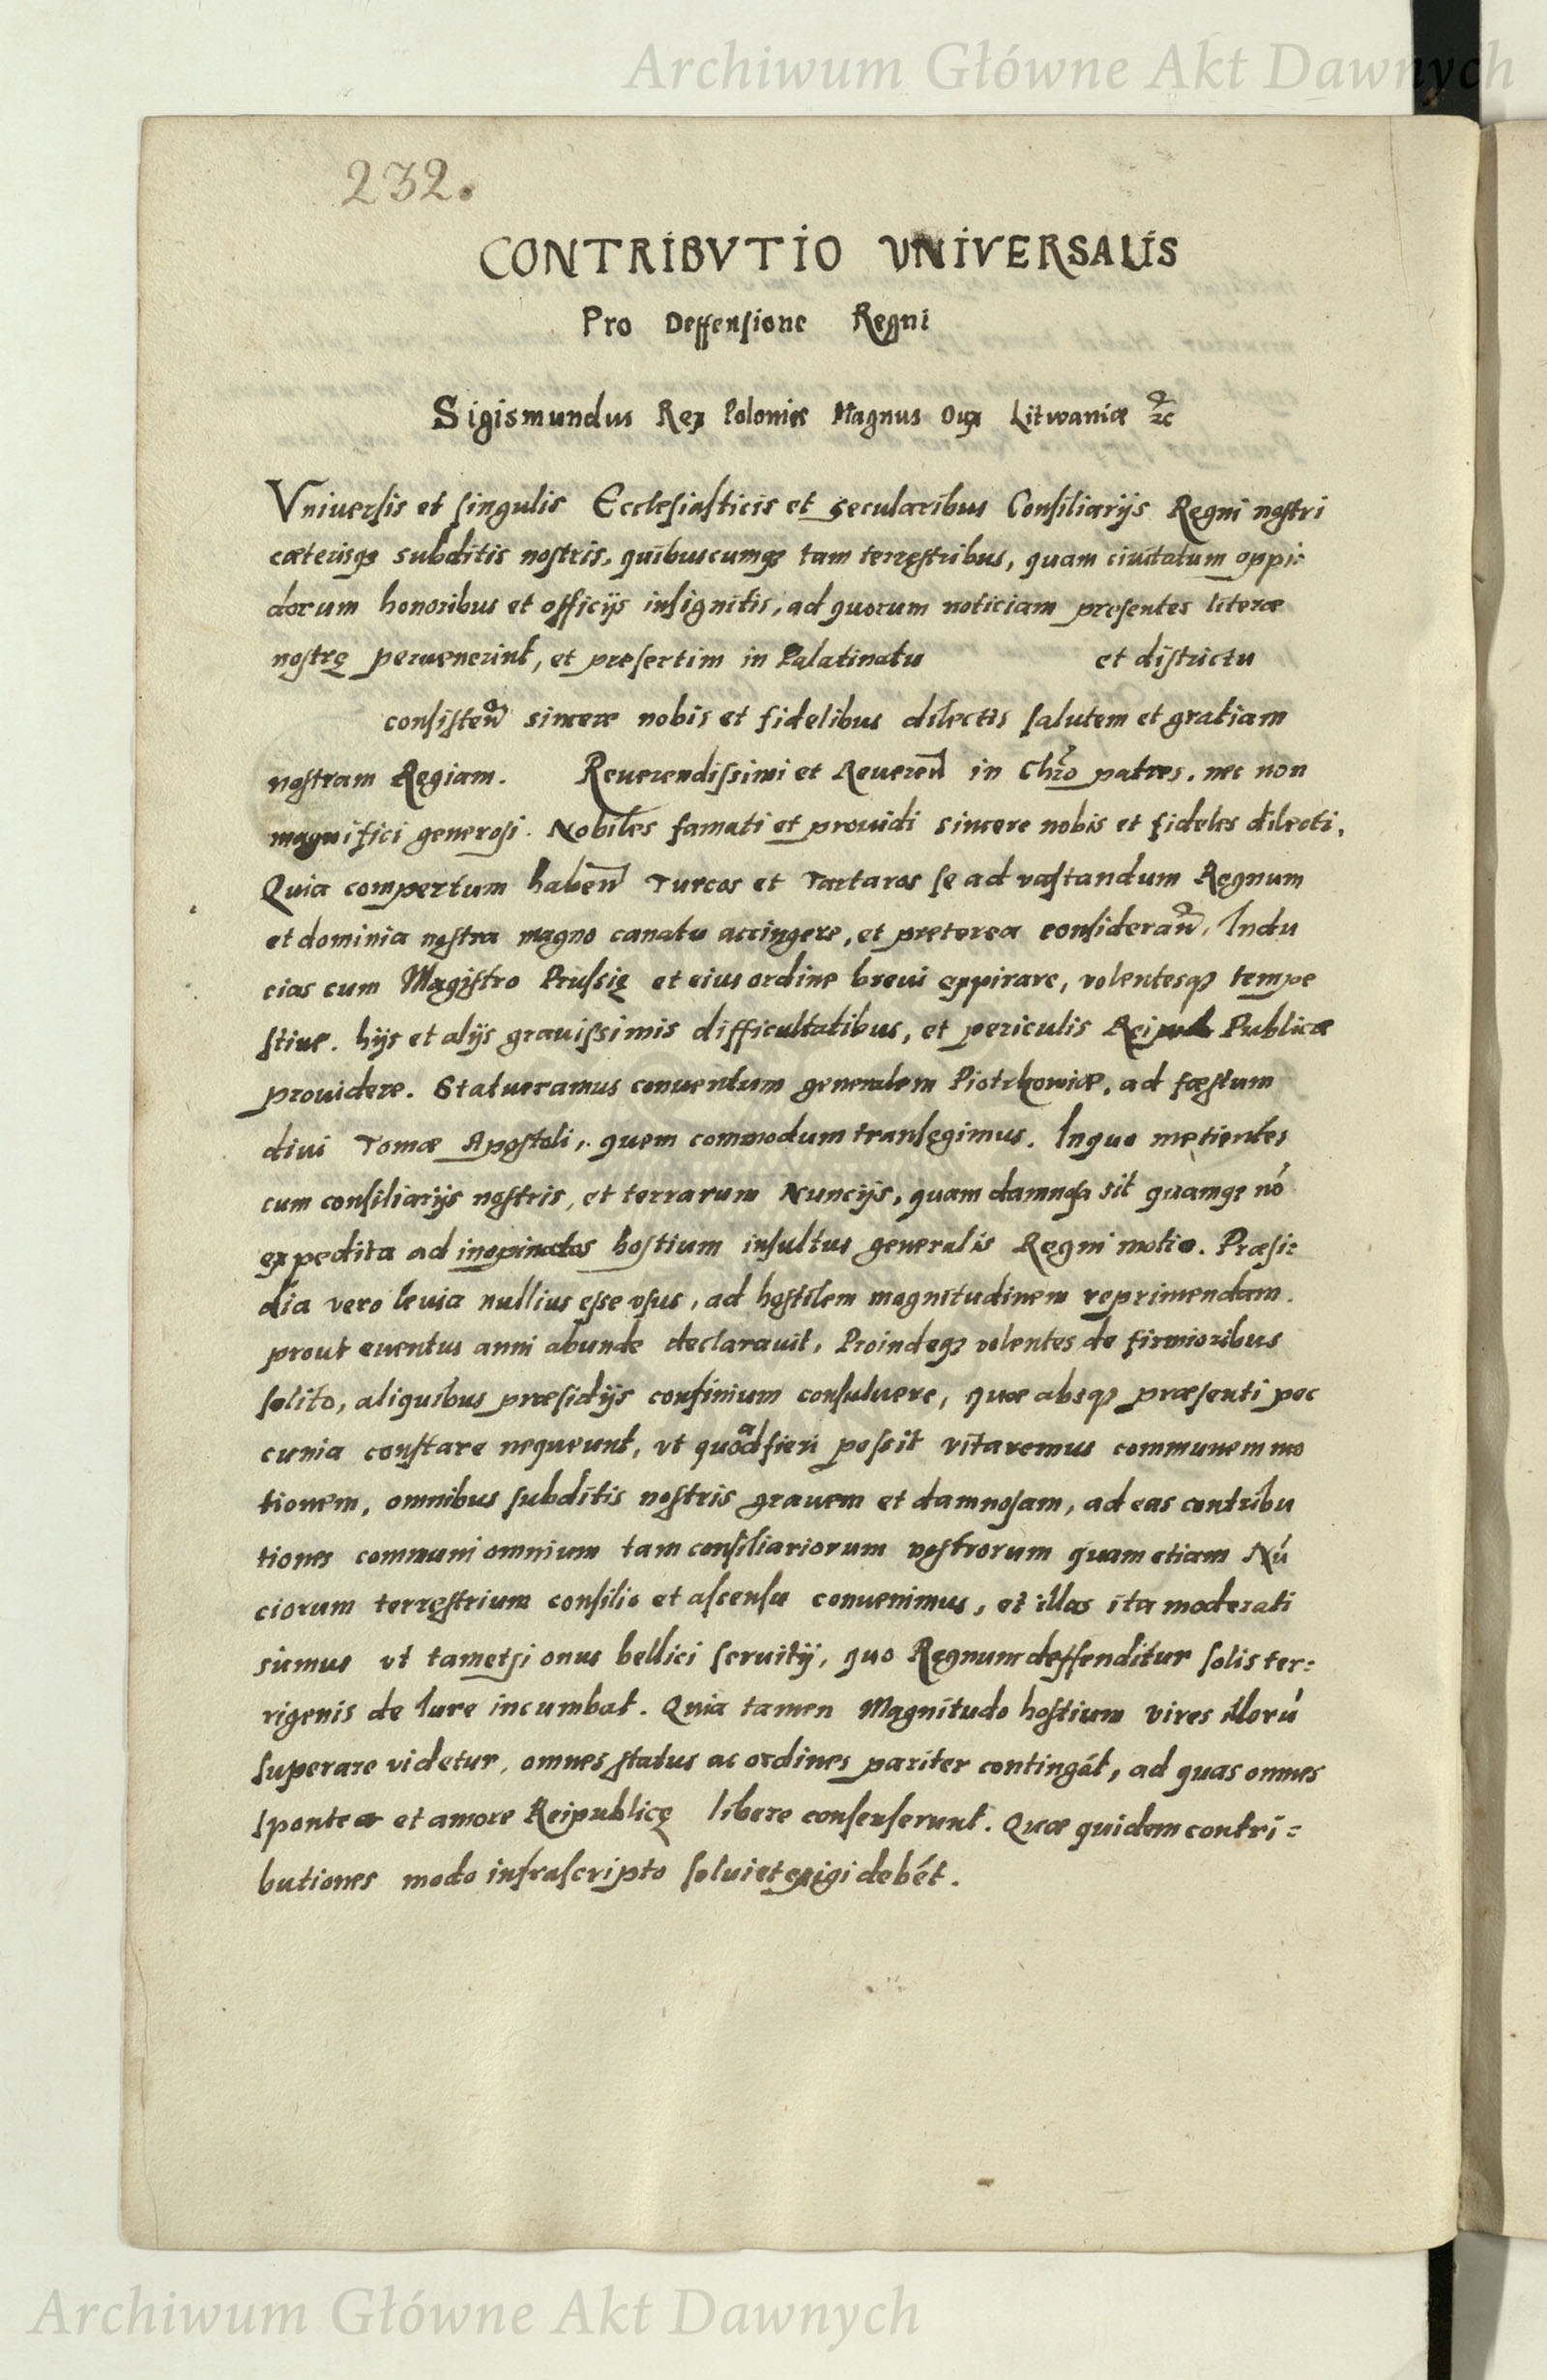 Archiwum Główne Akt Dawnych
232.
CONTRIBVTIO VNIVERSALIS
Pro Deffensione Regni
Sigismundus Rex Poloniæ Magnus Dux Litwaniæ ꝛc
Vniuersis et singulis Ecclesiasticis et secularibus Consiliarijs Regni nostri
cæterisqꝫ subditis nostris, quibuscumqꝫ tam terręstribus, quam ciuitatum oppi:
dorum honoribus et officijs insignitis, ad quorum noticiam presentes literæ
nostrę peruenerint, et presertim in Palatinatu et districtu
consisteñ sincere nobis et fidelibus dilectis salutem et gratiam
nostram Regiam. Reuerendissimi et Reuereñ in Chr̃o patres. nec non
magnifici generosi. Nobiles famati et prouidi sincere nobis et fideles dilecti.
Quia compertum habeñ Turcos et Tartaros se ad vastandum Regnum
et dominia nostra magno conatu accingere, et preterea considerañ, Indu
cias cum Magistro Prussię et eius ordine breui exspirare, volentesqꝫ tempe
stiue. hijs et alijs grauissimis difficultatibus, et periculis Rei Publicæ
prouidere. Statueramus conuentum generalem Piotrkowiæ, ad fæstum
diui Tomæ Apostoli, quem commodum tranſegimus. In quo metientes
cum consiliarijs nostris, et terrarum Nuncijs, quam damnosa sit quamqꝫ nō
expedita ad inopinatos hostium insultus generalis Regni motio. Præsi:
dia vero leuia nullius esse vsus, ad hostilem magnitudinem reprimendam.
prout euentus anni abunde declarauit, Proindeqꝫ volentes de firmioribus
solito, aliquibus præsidijs confinium consuluere, quæ absqꝫ præsenti pec
cunia constare nequeunt, vt quoad fieri possit vitaremus communem mo
tionem, omnibus subditis nostris grauem et damnosam, ad eas contribu
tiones communi omnium tam consiliariorum nostrorum quam etiam Nū
ciorum terręstrium consilio et ascensu conuenimus, et illas ita moderati
sumus vt tametsi onus bellici seruitij, quo Regnum deffenditur solis ter:
rigenis de Iure incumbat. Quia tamen Magnitudo hostium vires illorū
superare videtur, omnes status ac ordines pariter contingāt, ad quas omnes
sponte et amore Reipublicę libere consenserunt. Quæ quidem contri:
butiones modo infrascripto solui et exigi debēt.
Archiwum Główne Akt Dawnych